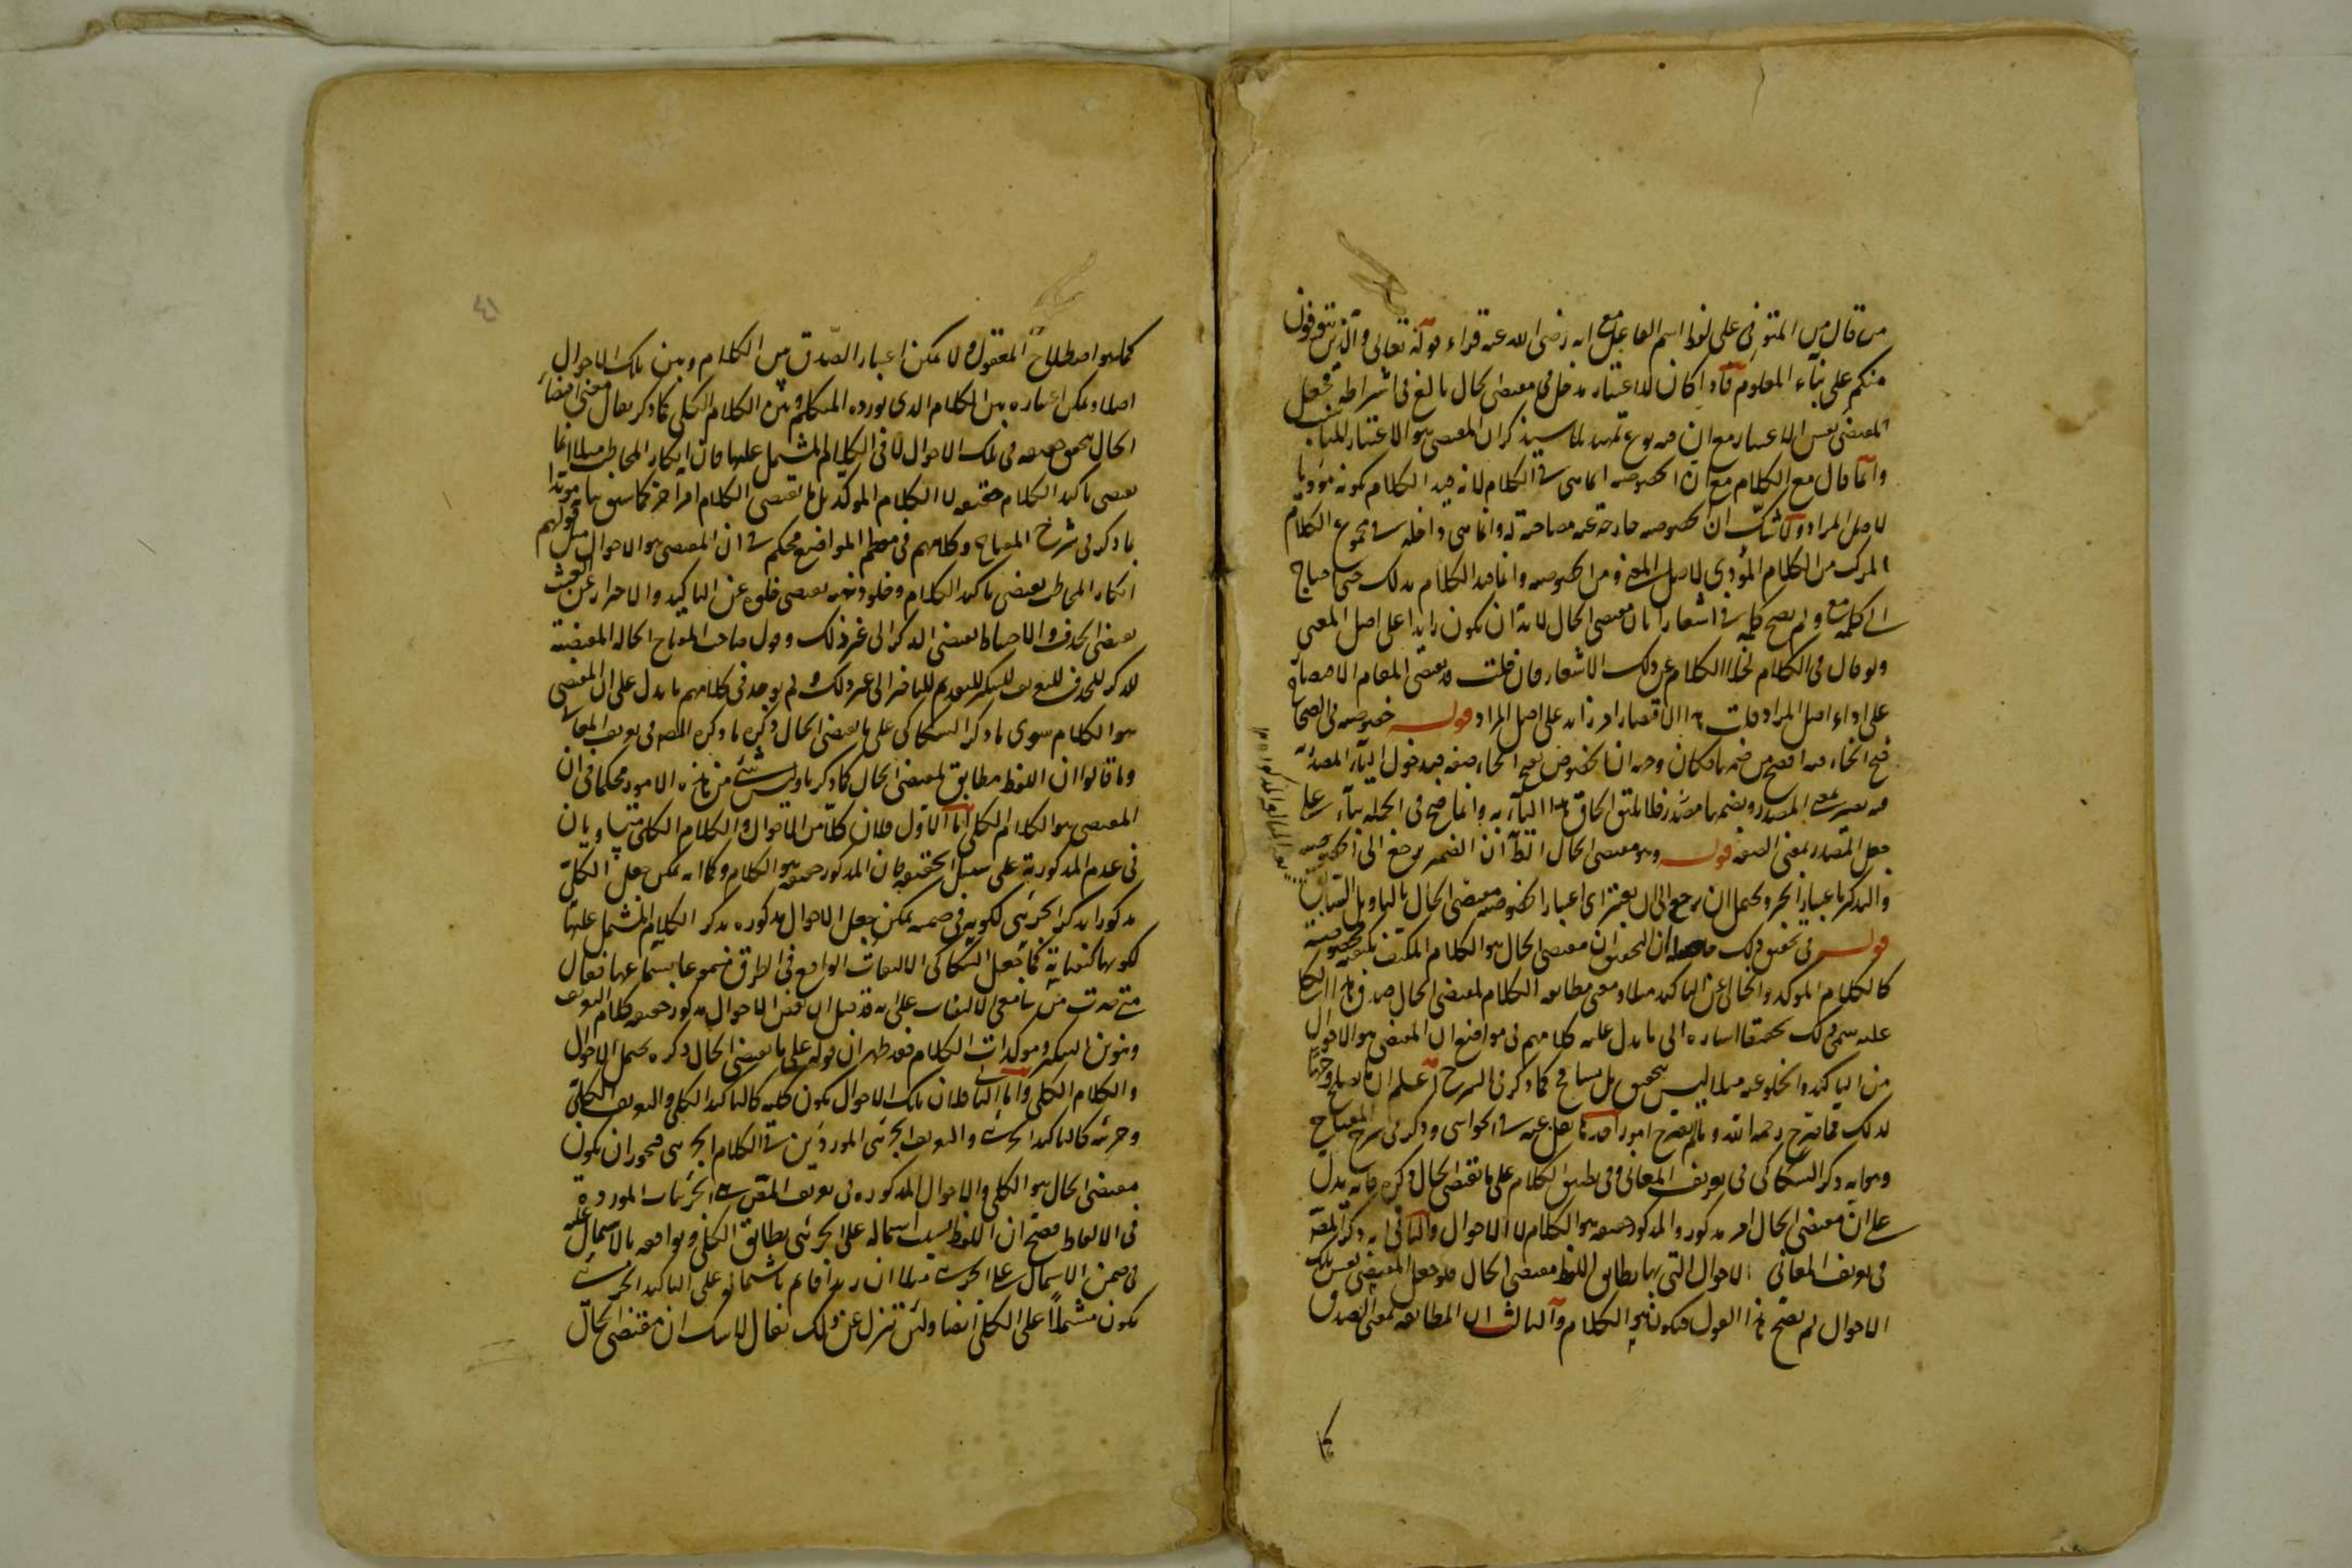 من قال من المتوفى على لفظ اسم الفاعل مع انه رضى الله عنه قراء قوله تعالى والذين يتوفون
منكم على بناء المعلوم قاد اكان للاعتبار مدخل فى مقتضى الحال بالغ فى اشراطه فجعل
المقتضى نفس الاعتبار مع ان فيه نوع تمهيد لما سيذكر ان المقتضى هو الاعتبار المناسب
وانما قال مع الكلام مع ان الخصوصية انما هى فى الكلام لانه قيد الكلام بكونه مؤديا
لاصل المراد ولا شك ان الخصوصية خارجة عنه مصاحبة له وانما هى داخلة فى مجموع الكلام
المركب من الكلام المؤدى لاصل المعنى ومن الخصوصية وانما قيد الكلام بذلك حتى احتاج
الى كلمة مع ولم يصح كلمة فى اشعارا بان مقتضى الحال لابد ان يكون زايدا على اصل المعنى
ولو قال فى الكلام لخلا الكلام عن ذلك الاشعار فان قلت قد يقتضى المقام الاقتصار
على اداء اصل المراد قلت هذا الاقتصار امر زايد على اصل المراد قوله خصوصية فى الصحاح
فتح الخاء فيه افصح من ضمها فكان وجهه ان الخصوص بفتح الخاء صفة فبدخول الياء المصدرية
فيه يصير بمعنى المصدر وبضمها مصدر فلا يليق الحاق هذا الياء به وانما صح فى الجملة بناء على
جعل المصدر بمعنى الصفة قوله وهو مقتضى الحال الظاهر ان الضمير يرجع الى الخصوصية
والتذكير باعتبار الخبر ويحتمل ان يرجع الى ان يعتبر اى اعتبار الخصوصية مقتضى الحال بالتاويل السابق
قوله فى تحقيق ذلك حاصله ان التحقيق ان مقتضى الحال هو الكلام المكيف بكيفية مخصوصة
كالكلام المؤكد والخالى عن التاكيد مثلا ومعنى مطابقة الكلام لمقتضى الحال صدق هذا الكلام
عليه سمى ذلك تحقيقا اشارة الى ما يدل عليه كلامهم فى مواضع ان المقتضى هو الاحوال
من التاكيد والخلو عنه مثلا ليس بتحقيق بل مسامح كما ذكر فى الشرح اعلم ان ما يصلح وجها
لذلك مما صرح رحمه الله وما لم يصرح امور احدها نقل عنه فى الحواشى وذكر فى شرح المفتاح
وهو انه ذكر السكاكى فى تعريف المعانى وفى تطبيق الكلام على ما يقتضى الحال ذكره فانه يدل
على ان مقتضى الحال امر مذكور والمذكور حقيقة هو الكلام لا الاحوال والثانى انه ذكر المصنف
فى تعريف المعانى الاحوال التى بها يطابق اللفظ مقتضى الحال فلو جعل المقتضى نفس تلك
الاحوال لم يصح هذا القول فيكون هو الكلام والثالث ان المطابقة بمعنى الصدق
كما
كما هو اصطلاح المعقول لا يمكن اعتبار الصدق بين الكلام وبين تلك الاحوال
اصلا ويمكن اعتباره بين الكلام الذى يورده المتكلم وبين الكلام الكلى كما ذكر يقال معنى اقتضاء
الحال يتحقق حقيقة فى تلك الاحوال لا فى الكلام المشتمل عليها فان انكار المخاطب مثلا انما
يقتضى تاكيد الكلام حقيقة لا الكلام المؤكد بل يقتضى الكلام امرا اخر كما سبق
ما ذكر فى شرح المفتاح وكلامهم فى معظم المواضع محكم فى ان المقتضى هو الاحوال مثل قولهم
انكار المخاطب يقتضى تاكيد الكلام وخلو ذهنه يقتضى خلوه عن التاكيد والاحتراز عن العبث
يقتضى الحذف والاحتياط يقتضى الذكر الى غير ذلك وقول صاحب المفتاح الحالة المقتضية
للذكر للحذف للتعريف للتنكير للتقديم للتاخير الى غير ذلك ولم يوجد فى كلامهم ما يدل على ان المقتضى
هو الكلام سوى ما ذكر السكاكى على ما يقتضى الحال ذكره وما ذكره المصنف فى تعريف المعانى
وما قالوا ان اللفظ مطابق لمقتضى الحال كما ذكرنا وليس شئ من هذه الامور محكما فى ان
المقتضى هو الكلام الكلى اما الاول فلان كلا من الاحوال والكلام الكلى متساويان
فى عدم المذكورية على سبيل الحقيقة فان المذكور حقيقة هو الكلام وكما انه يمكن جعل الكلى
مذكورا بذكر الجزئى لكونه فى ضمنه يمكن جعل الاحوال مذكورة بذكر الكلام المشتمل عليها
لكونها كيفياته كما جعل السكاكى الالتفات الواقع فى الطرق مسموعا بسماعها فقال
متى صرت من سامعى الالتفات على انه قد قيل ان بعض الاحوال مذكور حقيقة كلام التعريف
وتنوين التنكير ومؤكدات الكلام فقد ظهر ان قوله على ما يقتضى الحال ذكره يحتمل الاحوال
والكلام الكلى واما الثانى فلان تلك الاحوال يكون كلية كالتاكيد الكلى والتعريف الكلى
وجزئية كالتاكيد الجزئى والتعريف الجزئى الموردين فى الكلام الجزئى فيجوز ان يكون
مقتضى الحال هو الكلى والاحوال المذكورة فى تعريف الفن هى الجزئيات الموردة
فى الالفاظ فيصح ان اللفظ بسبب اشتماله على الجزئى يطابق الكلى ويوافقه بالاشتمال عليه
فى ضمن الاشتمال على الجزئى مثلا ان زيدا قائم باشتماله على التاكيد الجزئى
يكون مشتملا على الكلى ايضا ولئن تنزل عن ذلك نقال لا شك ان مقتضى الحال